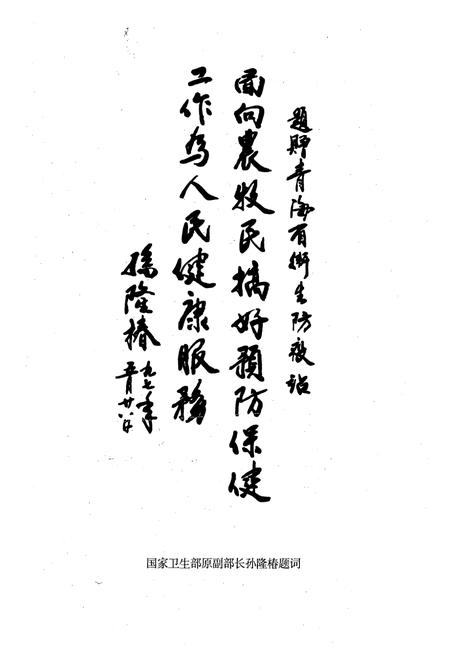 题赠青海省卫生防疫站
面向农牧民搞好预防保健
工作为人民健康服务
孙隆椿
九七年
五月廿八日
国家卫生部原副部长孙隆椿题词